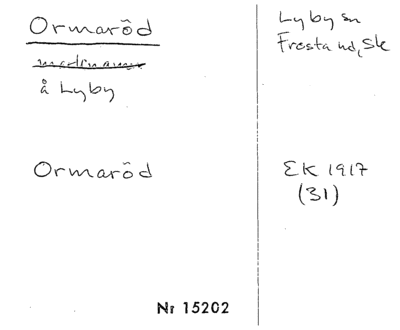 Ormaröd
å Lyby
Ormaröd
Lyby sn
Frosta hd, Sk
EK 1917
(31)
Nr 15202